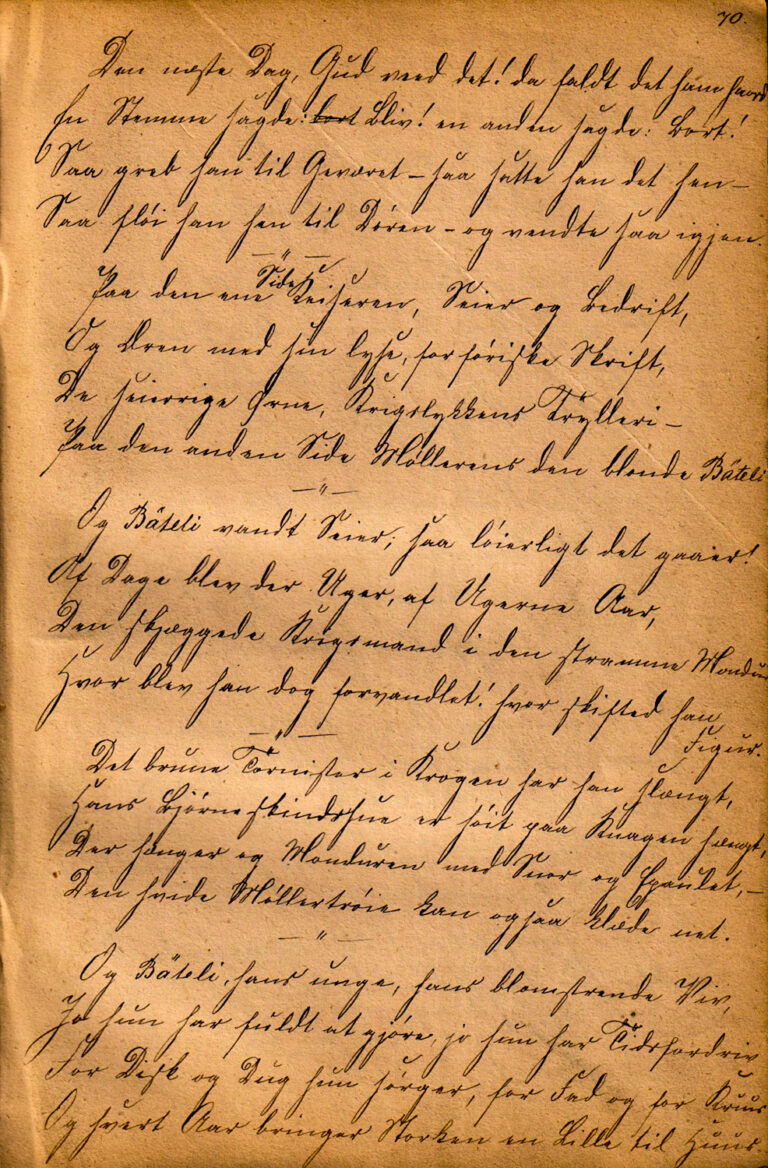 70.
Den næste Dag, Gud veed det! da faldt det ham haard
En Stemme sagde: bort Bliv! en anden sagde: Bort!
Saa greb han til Geværet – saa satte han det hen –
Saa fløi han hen til Døren – og vendte saa igjen.
– " –
Paa den ene Side Keiseren, Seier og Bedrift,
Og Æren med sin lyse, forføriske Skrift,
De seierrige Ørne, Krigslykkens Trylleri –
Paa den anden Side Møllerens den blonde Bäteli
– " –
Og Bäteli vandt Seier; saa løierligt det gaaer!
Af Dage blev der Uger, af Ugerne Aar,
Den skjæggede Krigsmand i den stramme Mondur
Hvor blev han dog forvandlet! hvor skifted han
Figur.
– " –
Det brune Tornister i Krogen har han slængt,
Hans Bjørneskindshue er høit paa Knagen hængt,
Der hænger og Monduren med Snor og Epaulet, –
Den hvide Møllertrøie kan ogsaa klæde net.
– " –
Og Bäteli, hans unge, hans blomstrende Viv,
Jo hun har fuldt at gjøre, jo hun har Tidsfordriv
For Disk og Dug hun sørger, for Fad og for Kruus
Og hvert Aar bringer Storken en Lille til Huus